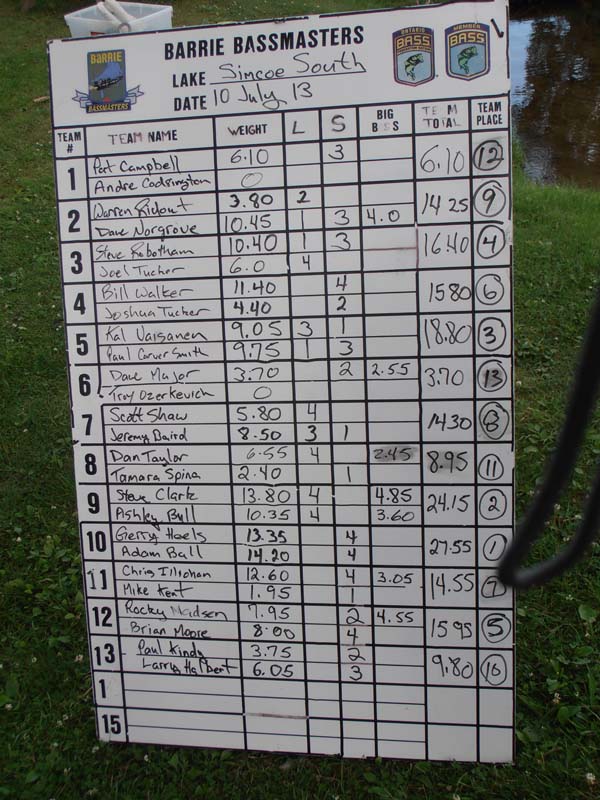 BARRIE BASSMASTERS
BARRIE BASSMASTERS
ONTARIO BASS
MEMBER BASS
LAKE Simcoe South
DATE 10 July 13
TEAM # TEAM NAME WEIGHT L S BIG B SS TEAM TOTAL TEAM PLACE
1 Pat Campbell 6.10 3 6.10 12
Andre Codrington 0
2 Warren Ridout 3.80 2 14 25 9
Dave Norgrove 10.45 1 3 4.0
3 Steve Robotham 10.40 1 3 16.40 4
Joel Tucker 6.0 4
4 Bill Walker 11.40 4 15 80 6
Joshua Tucker 4.40 2
5 Kal Vaisanen 9.05 3 1 18.80 3
Paul Carver Smith 9.75 1 3
6 Dave Major 3.70 2 2.55 3.70 13
Troy Ozerkevich 0
7 Scott Shaw 5.80 4 14 30 8
Jeremy Baird 8.50 3 1
8 Dan Taylor 6.55 4 2.45 8.95 11
Tamara Spina 2.40 1
9 Steve Clark 13.80 4 4.85 24.15 2
Ashley Bull 10.35 4 3.60
10 Gerry Heels 13.35 4 27.55 1
Adam Ball 14.20 4
11 Chris 12.60 4 3.05 14.55 7
Mike Kent 1.95 1
12 Rocky Madsen 7.95 2 4.55 15 95 5
Brian Moore 8.00 4
13 Paul Kindy 3.75 2 9.80 10
Larry Halbert 6.05 3
1
15